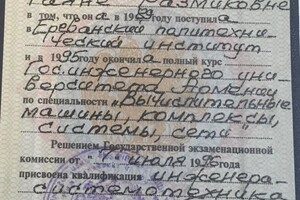 Размиковне
в том, что он а в 19 году поступил а
Ереванский политехни-
ческий институт
и в 1995 году окончил а полный курс
Гос. инженерного уни-
верситета Армении
по специальности „Вычислительные
машины, комплексы,
системы, сети"
Решением Государственной экзаменационной
комиссии от „ 7 " июля 1995 года
присвоена квалификация инженера-
системотехника